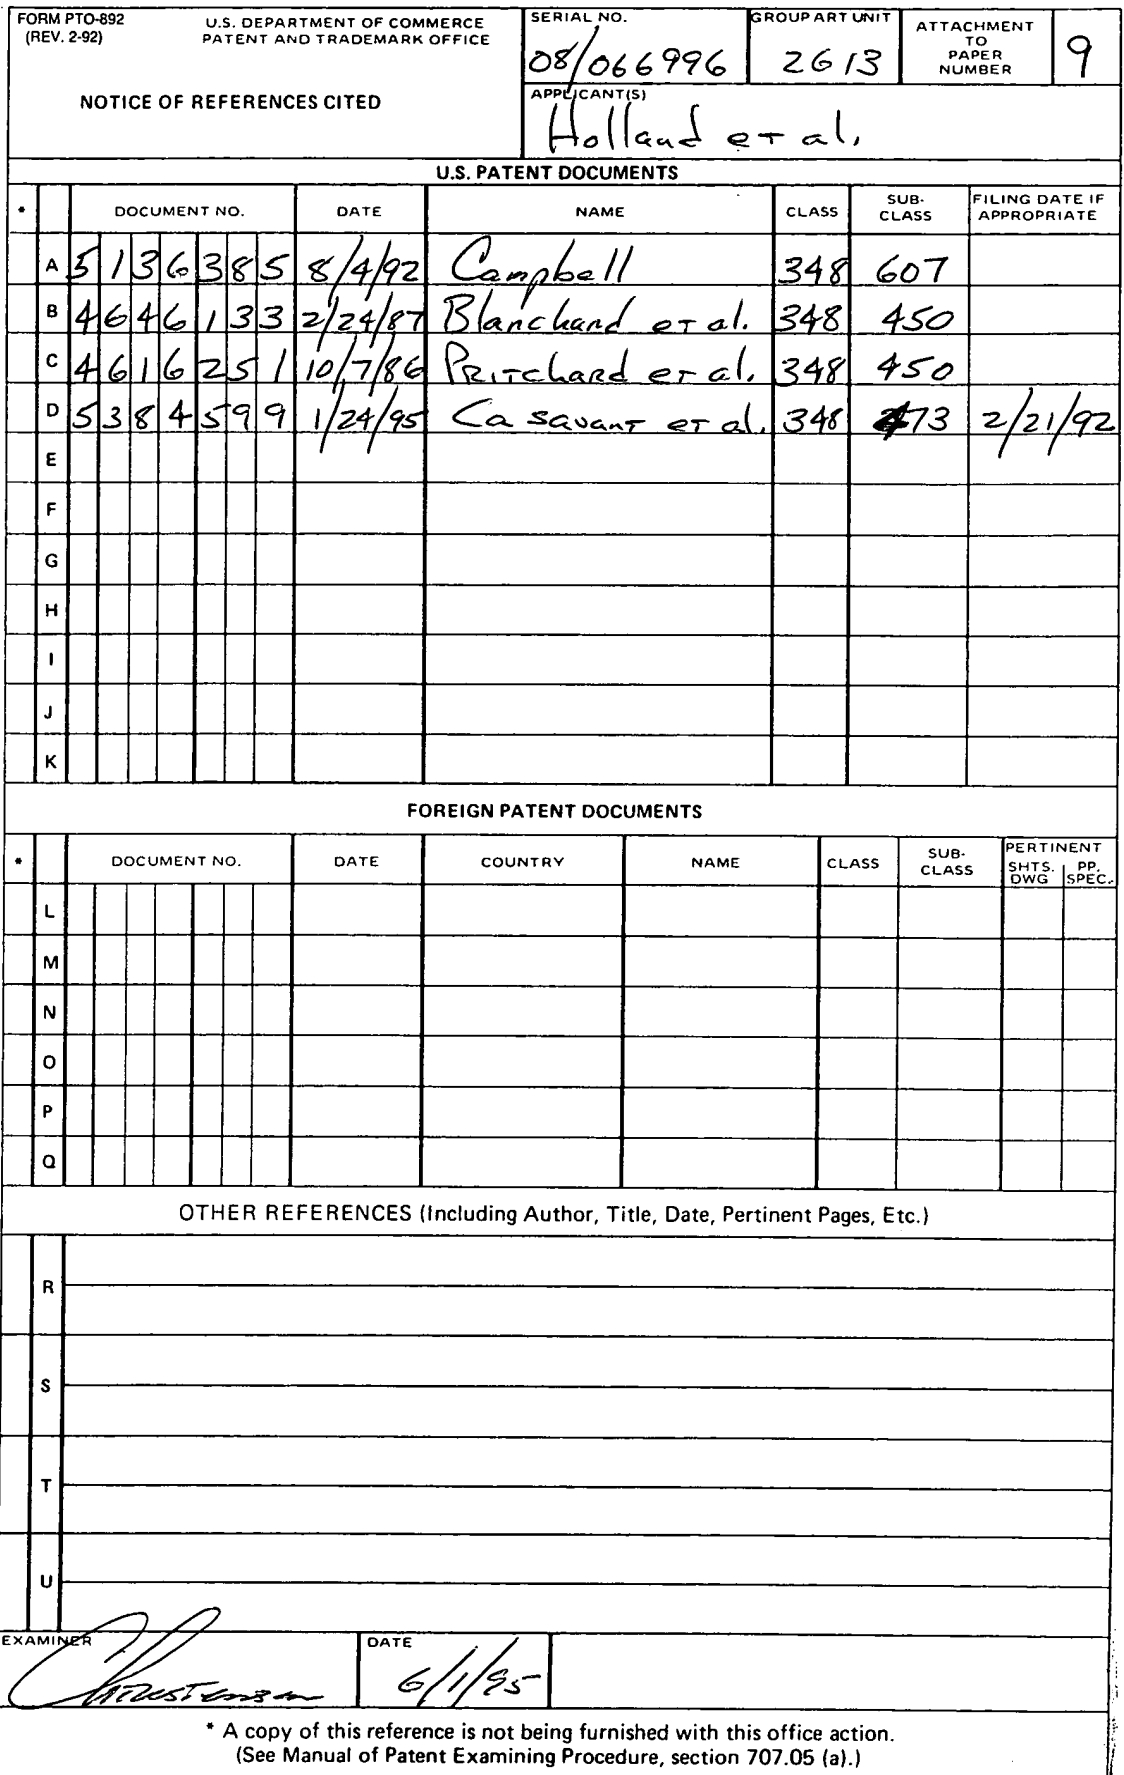 FORM PTO-892 U.S. DEPARTMENT OF COMMERCE
(REV. 2-92) PATENT AND TRADEMARK OFFICE
NOTICE OF REFERENCES CITED
SERIAL NO.
08/066996
GROUP ART UNIT
2613
ATTACHMENT
TO
PAPER
NUMBER
9
APPLICANT(S)
Holland et al.
U.S. PATENT DOCUMENTS
* DOCUMENT NO. DATE NAME CLASS SUB-CLASS FILING DATE IF APPROPRIATE
A 5136385 8/4/92 Campbell 348 607
B 4646133 2/24/87 Blanchard et al. 348 450
C 4616251 10/7/86 Pritchard et al. 348 450
D 5384599 1/24/95 Casavant et al. 348 473 2/21/92
E
F
G
H
I
J
K
FOREIGN PATENT DOCUMENTS
* DOCUMENT NO. DATE COUNTRY NAME CLASS SUB-CLASS PERTINENT SHTS. DWG PP. SPEC.
L
M
N
O
P
Q
OTHER REFERENCES (Including Author, Title, Date, Pertinent Pages, Etc.)
R
S
T
U
EXAMINER
Christensen
DATE
6/1/95
* A copy of this reference is not being furnished with this office action.
(See Manual of Patent Examining Procedure, section 707.05 (a).)